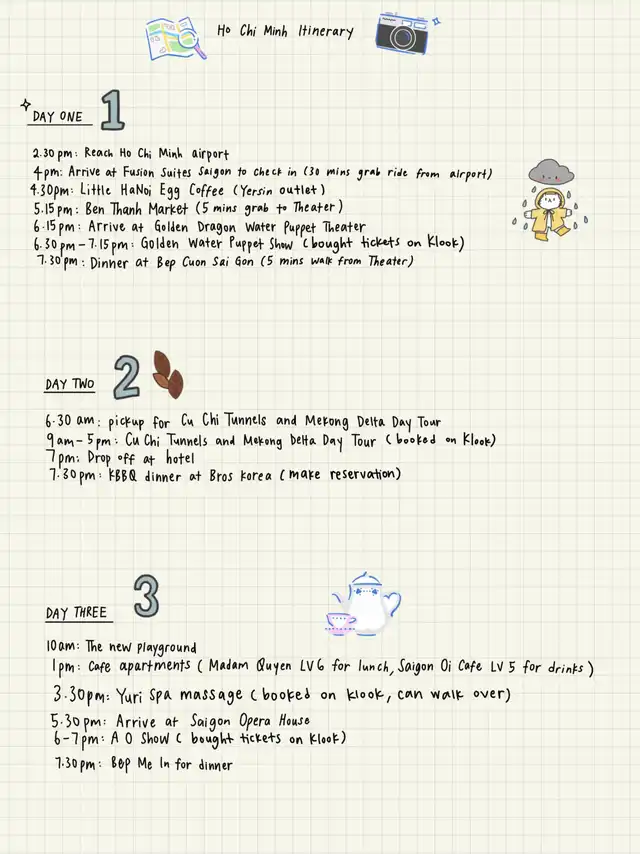 Ho Chi Minh Itinerary
DAY ONE 1
2.30pm: Reach Ho Chi Minh airport
4pm: Arrive at Fusion Suites Saigon to check in (30 mins grab ride from airport)
4.30pm: Little HaNoi Egg Coffee (Yersin outlet)
5.15pm: Ben Thanh Market (5 mins grab to Theater)
6.15pm: Arrive at Golden Dragon Water Puppet Theater
6.30pm - 7.15pm: Golden Water Puppet Show (bought tickets on Klook)
7.30pm: Dinner at Bep Cuon Sai Gon (5 mins walk from Theater)
DAY TWO 2
6.30 am: pickup for Cu Chi Tunnels and Mekong Delta Day Tour
9am - 5pm: Cu Chi Tunnels and Mekong Delta Day Tour (booked on Klook)
7pm: Drop off at hotel
7.30pm: KBBQ dinner at Bros Korea (make reservation)
DAY THREE 3
10am: The new playground
1pm: Cafe apartments (Madam Quyen LV6 for lunch, Saigon Oi Cafe LV 5 for drinks)
3.30pm: Yuri Spa massage (booked on klook, can walk over)
5.30pm: Arrive at Saigon Opera House
6-7pm: A O Show (bought tickets on Klook)
7.30pm: Bep Me In for dinner